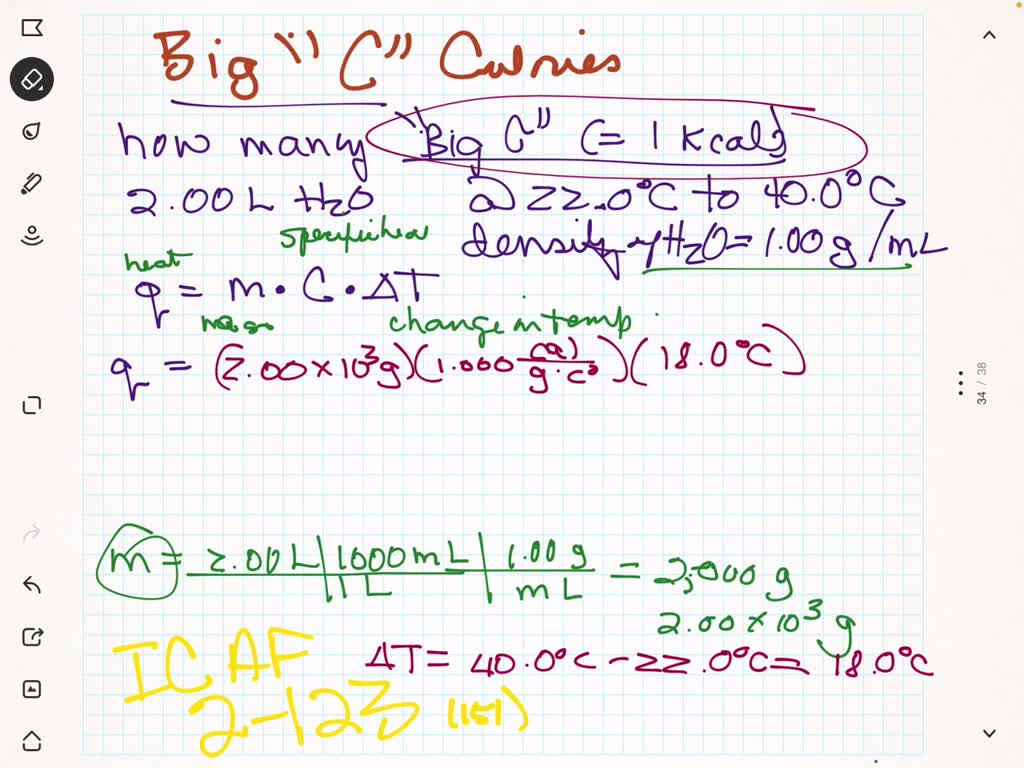 Big "C" Calories
how many "Big C" (= 1 Kcal)
2.00 L H2O @ 22.0°C to 40.0°C
specific heat density of H2O = 1.00 g/mL
heat
q = m · C · ΔT
mass change in temp
q = (2.00 x 10³g)(1.000 cal/g·c°)(18.0°C)
34 / 38
m = 2.00 L | 1000 mL | 1.00 g = 2,000 g
1 L | mL
2.00 x 10³ g
ΔT = 40.0°C - 22.0°C = 18.0°C
ICAF
2-123 (151)